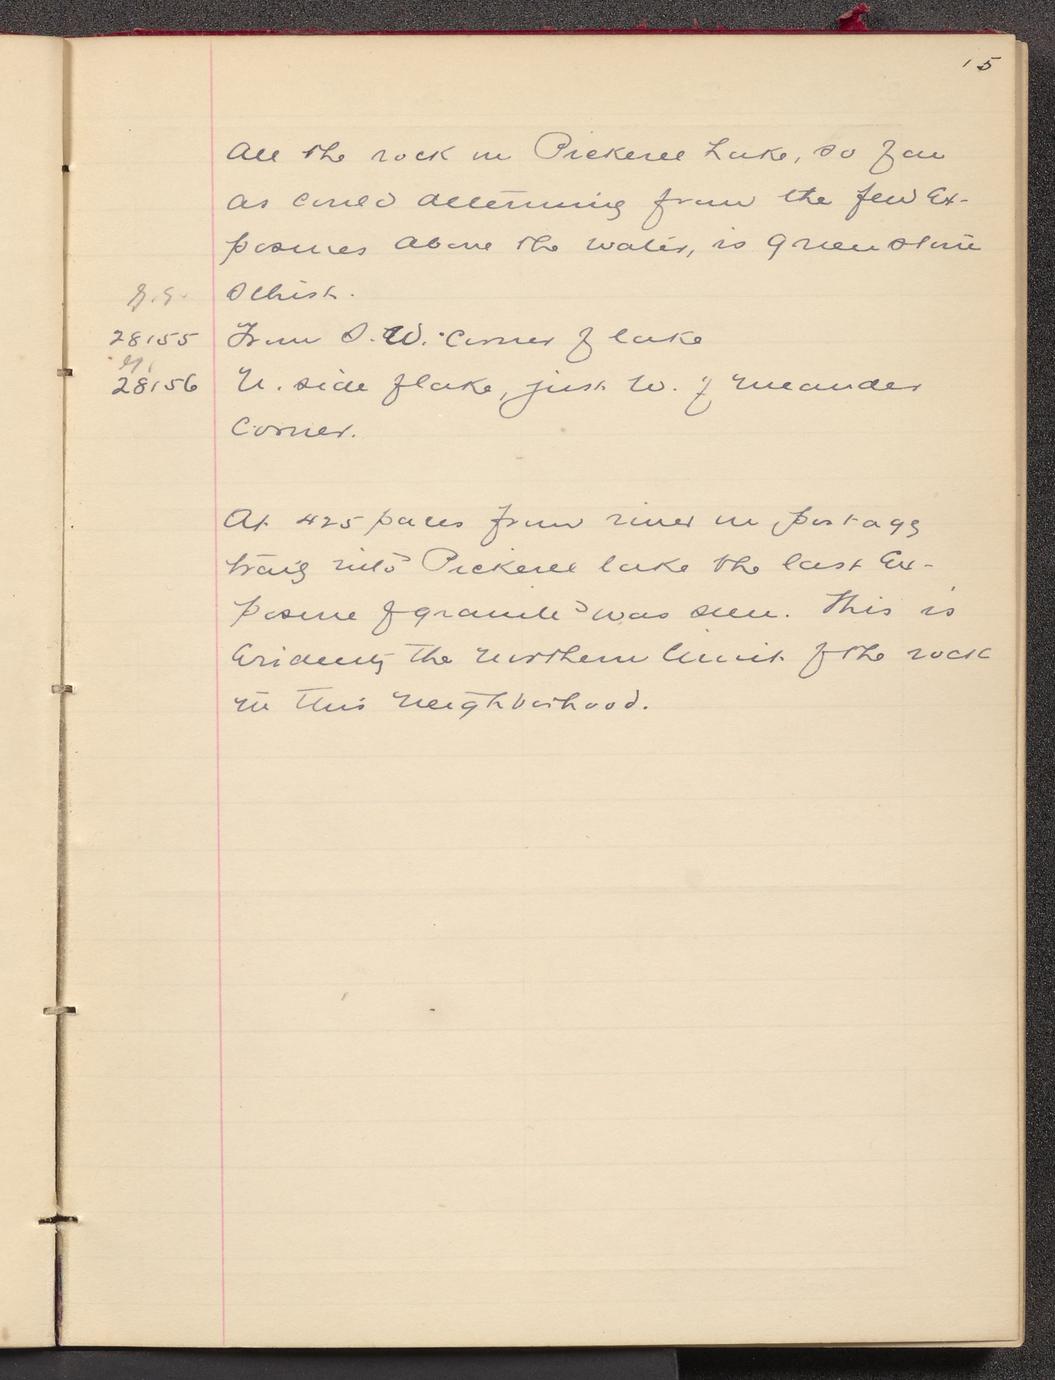 15
All the rock in Pickerel Lake, so far
as could determine from the few ex-
posures above the water, is greenstone
schist.
28155 From S.W. corner of lake
28156 N. side of lake, just W. of meander
corner.
At 425 paces from river on portage
trail into Pickerel lake the last ex-
posure of granite was seen. This is
evidently the northern limit of the rock
in this neighborhood.